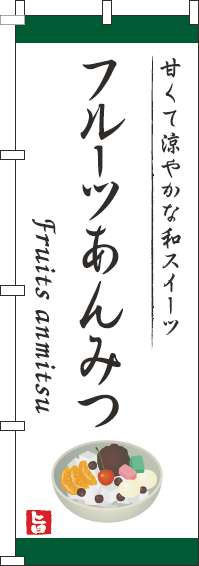 甘くて涼やかな和スイーツ
フルーツあんみつ
Fruits anmitsu
旨